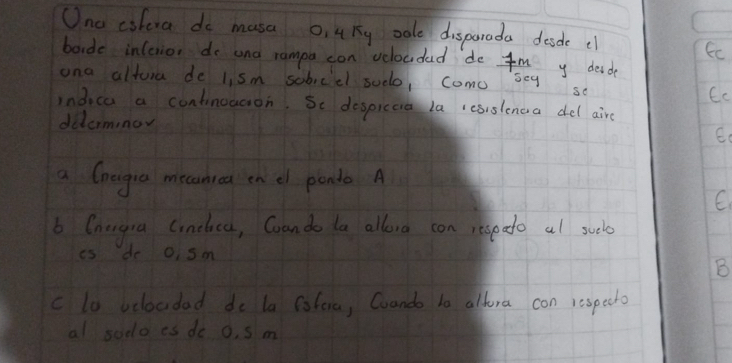 Una esfera de masa 0,4 Kg sale disparada desde el
borde inferior de una rampa con velocidad de 7m/seg y desde
una altura de 1,5m sobre el suelo, como se
indica a continuacion. Se desprecia la resistencia del aire
determinar
a Energia mecanica en el punto A
b Energia Cinetica, Cuando la altura con respecto al suelo
es de 0,5m
c la velocidad de la Esfera, Cuando la altura con respecto
al suelo es de 0,5 m
Ec
Ec
E
B